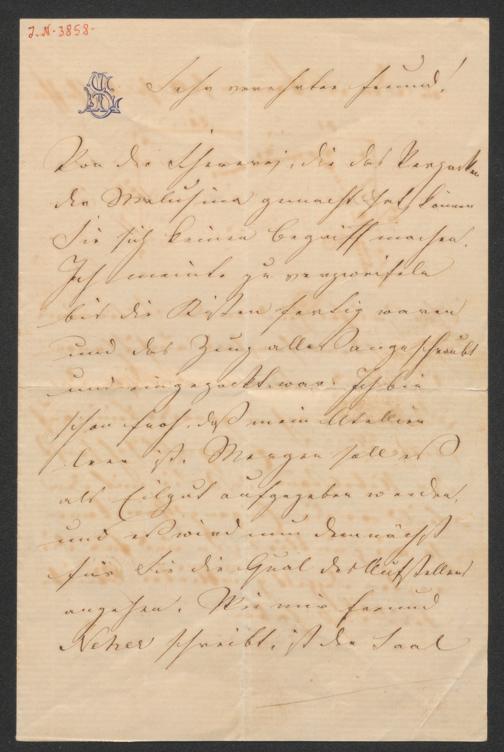 J.N. 3858.
Sehr verehrter Freund!
Von der Schererei, die das Verpacken
der Melusina gemacht hat, können
Sie sich keinen Begriff machen.
Ich meinte zu verzweifeln
bis die Kisten fertig waren
und das Zeug alles angeschraubt
und eingepackt war. Ich bin
schon froh, daß mein Atelier
leer ist. Morgen soll es
als Eilgut aufgegeben werden,
und es wird nun demnächst
für Sie die Qual des Aufstellens
angehen. Wie mir Freund
Neher schreibt, ist der Saal